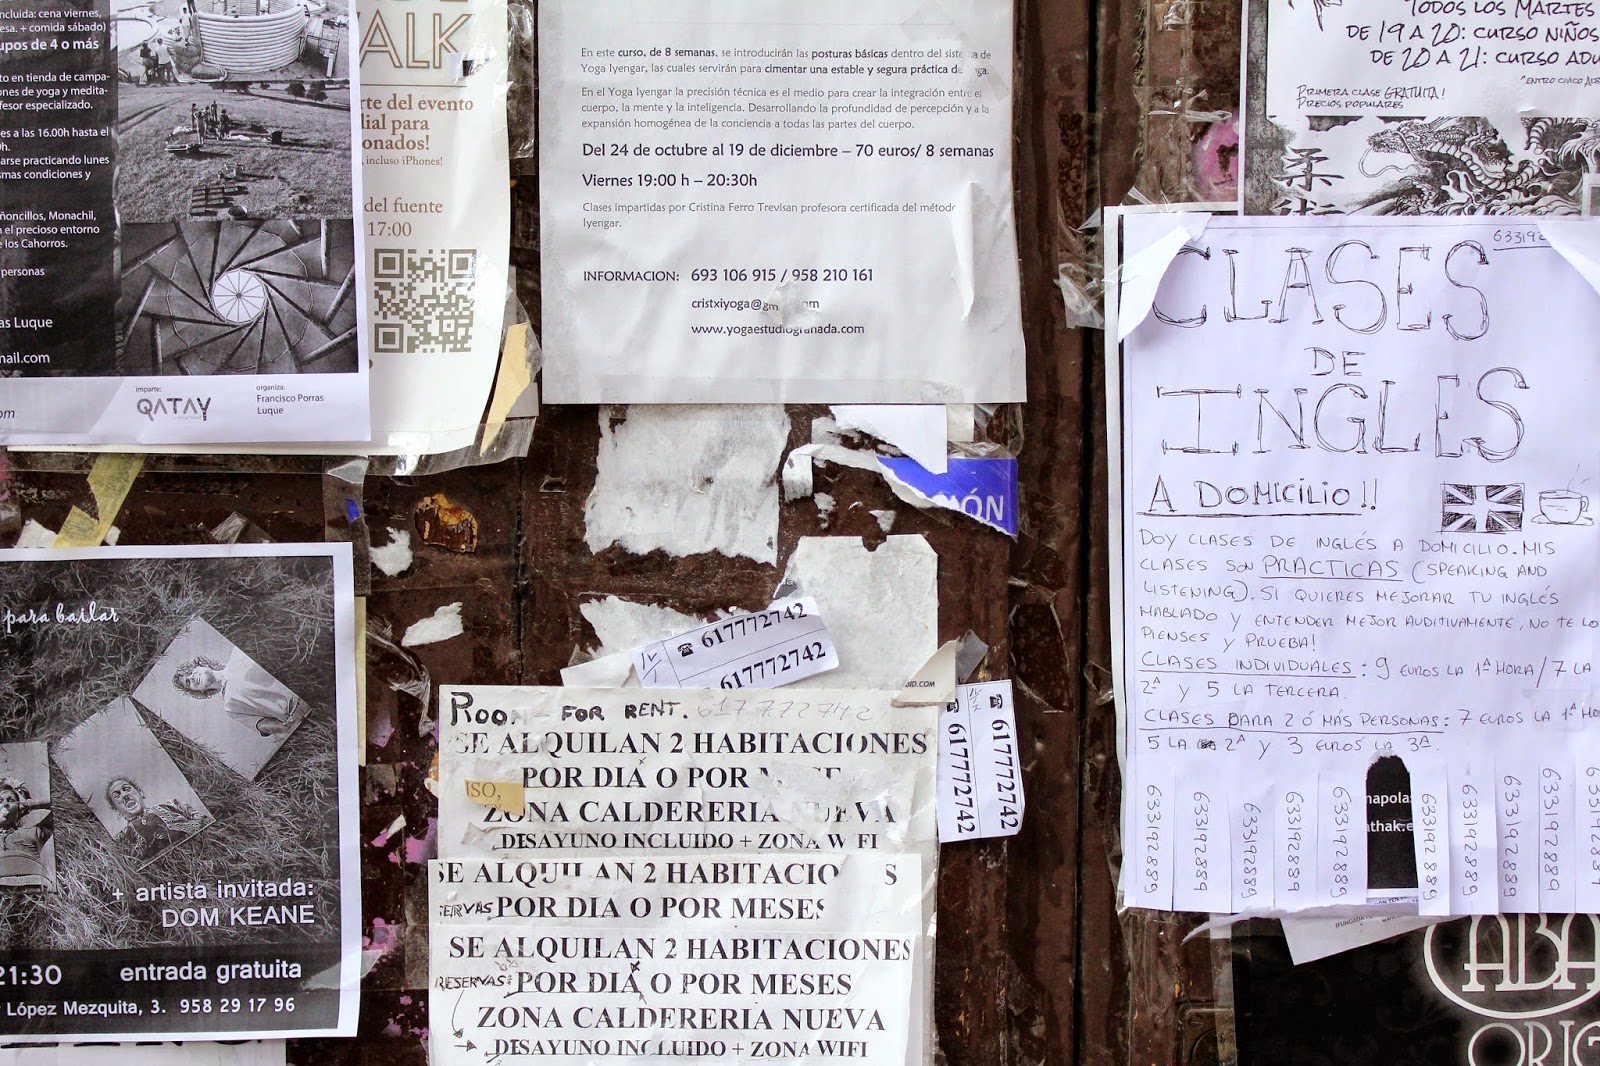 ncluida: cena viernes,
esa. + comida sábado)
upos de 4 o más
to en tienda de campa-
ones de yoga y medita-
fesor especializado.
es a las 16.00h hasta el
0h.
arse practicando lunes
smas condiciones y
ñoncillos, Monachil,
n el precioso entorno
e los Cahorros.
personas
as Luque
mail.com
om
imparte:
QATAY
organiza:
Francisco Porras
Luque
ALK
rte del evento
ial para
onados!
incluso iPhones!
del fuente
17:00
En este curso, de 8 semanas, se introducirán las posturas básicas dentro del sistema de
Yoga Iyengar, las cuales servirán para cimentar una estable y segura práctica de ga.
En el Yoga Iyengar la precisión técnica es el medio para crear la integración entre el
cuerpo, la mente y la inteligencia. Desarrollando la profundidad de percepción y a la
expansión homogénea de la conciencia a todas las partes del cuerpo.
Del 24 de octubre al 19 de diciembre – 70 euros/ 8 semanas
Viernes 19:00 h – 20:30h
Clases impartidas por Cristina Ferro Trevisan profesora certificada del método
Iyengar.
INFORMACION: 693 106 915 / 958 210 161
cristxiyoga@gm om
www.yogaestudiogranada.com
TODOS LOS MARTES
DE 19 A 20: CURSO NIÑOS
DE 20 A 21: CURSO ADU
PRIMERA CLASE GRATUITA!
PRECIOS POPULARES
633192
CLASES
DE
INGLES
A DOMICILIO!!
DOY CLASES DE INGLÉS A DOMICILIO. MIS
CLASES SON PRACTICAS (SPEAKING AND
LISTENING). SI QUIERES MEJORAR TU INGLÉS
HABLADO Y ENTENDER MEJOR AUDITIVAMENTE, NO TE LO
PIENSES Y PRUEBA!
CLASES INDIVIDUALES: 9 EUROS LA 1ª HORA / 7 LA
2ª Y 5 LA TERCERA.
CLASES PARA 2 Ó MÁS PERSONAS: 7 EUROS LA 1ª HO
5 LA 2ª Y 3 EUROS LA 3ª.
633192889
633192889
633192889
633192889
633192889
633192889
633192889
633192889
633192889
633192889
napolas
athak.e
ABA
ORIG
IÓN
para bailar
+ artista invitada:
DOM KEANE
21:30 entrada gratuita
López Mezquita, 3. 958 29 17 96
☎ 617772742
617772742
ID.COM
☎ 617772742
☎ 617772742
ROOM FOR RENT. 617772742
SE ALQUILAN 2 HABITACIONES
POR DIA O POR MESE
ISO,
ZONA CALDERERIA NUEVA
DESAYUNO INCLUIDO + ZONA WIFI
SE ALQUILAN 2 HABITACIO S
ERVAS POR DIA O POR MESES
SE ALQUILAN 2 HABITACIONES
RESERVAS: POR DIA O POR MESES
ZONA CALDERERIA NUEVA
DESAYUNO INCLUIDO + ZONA WIFI